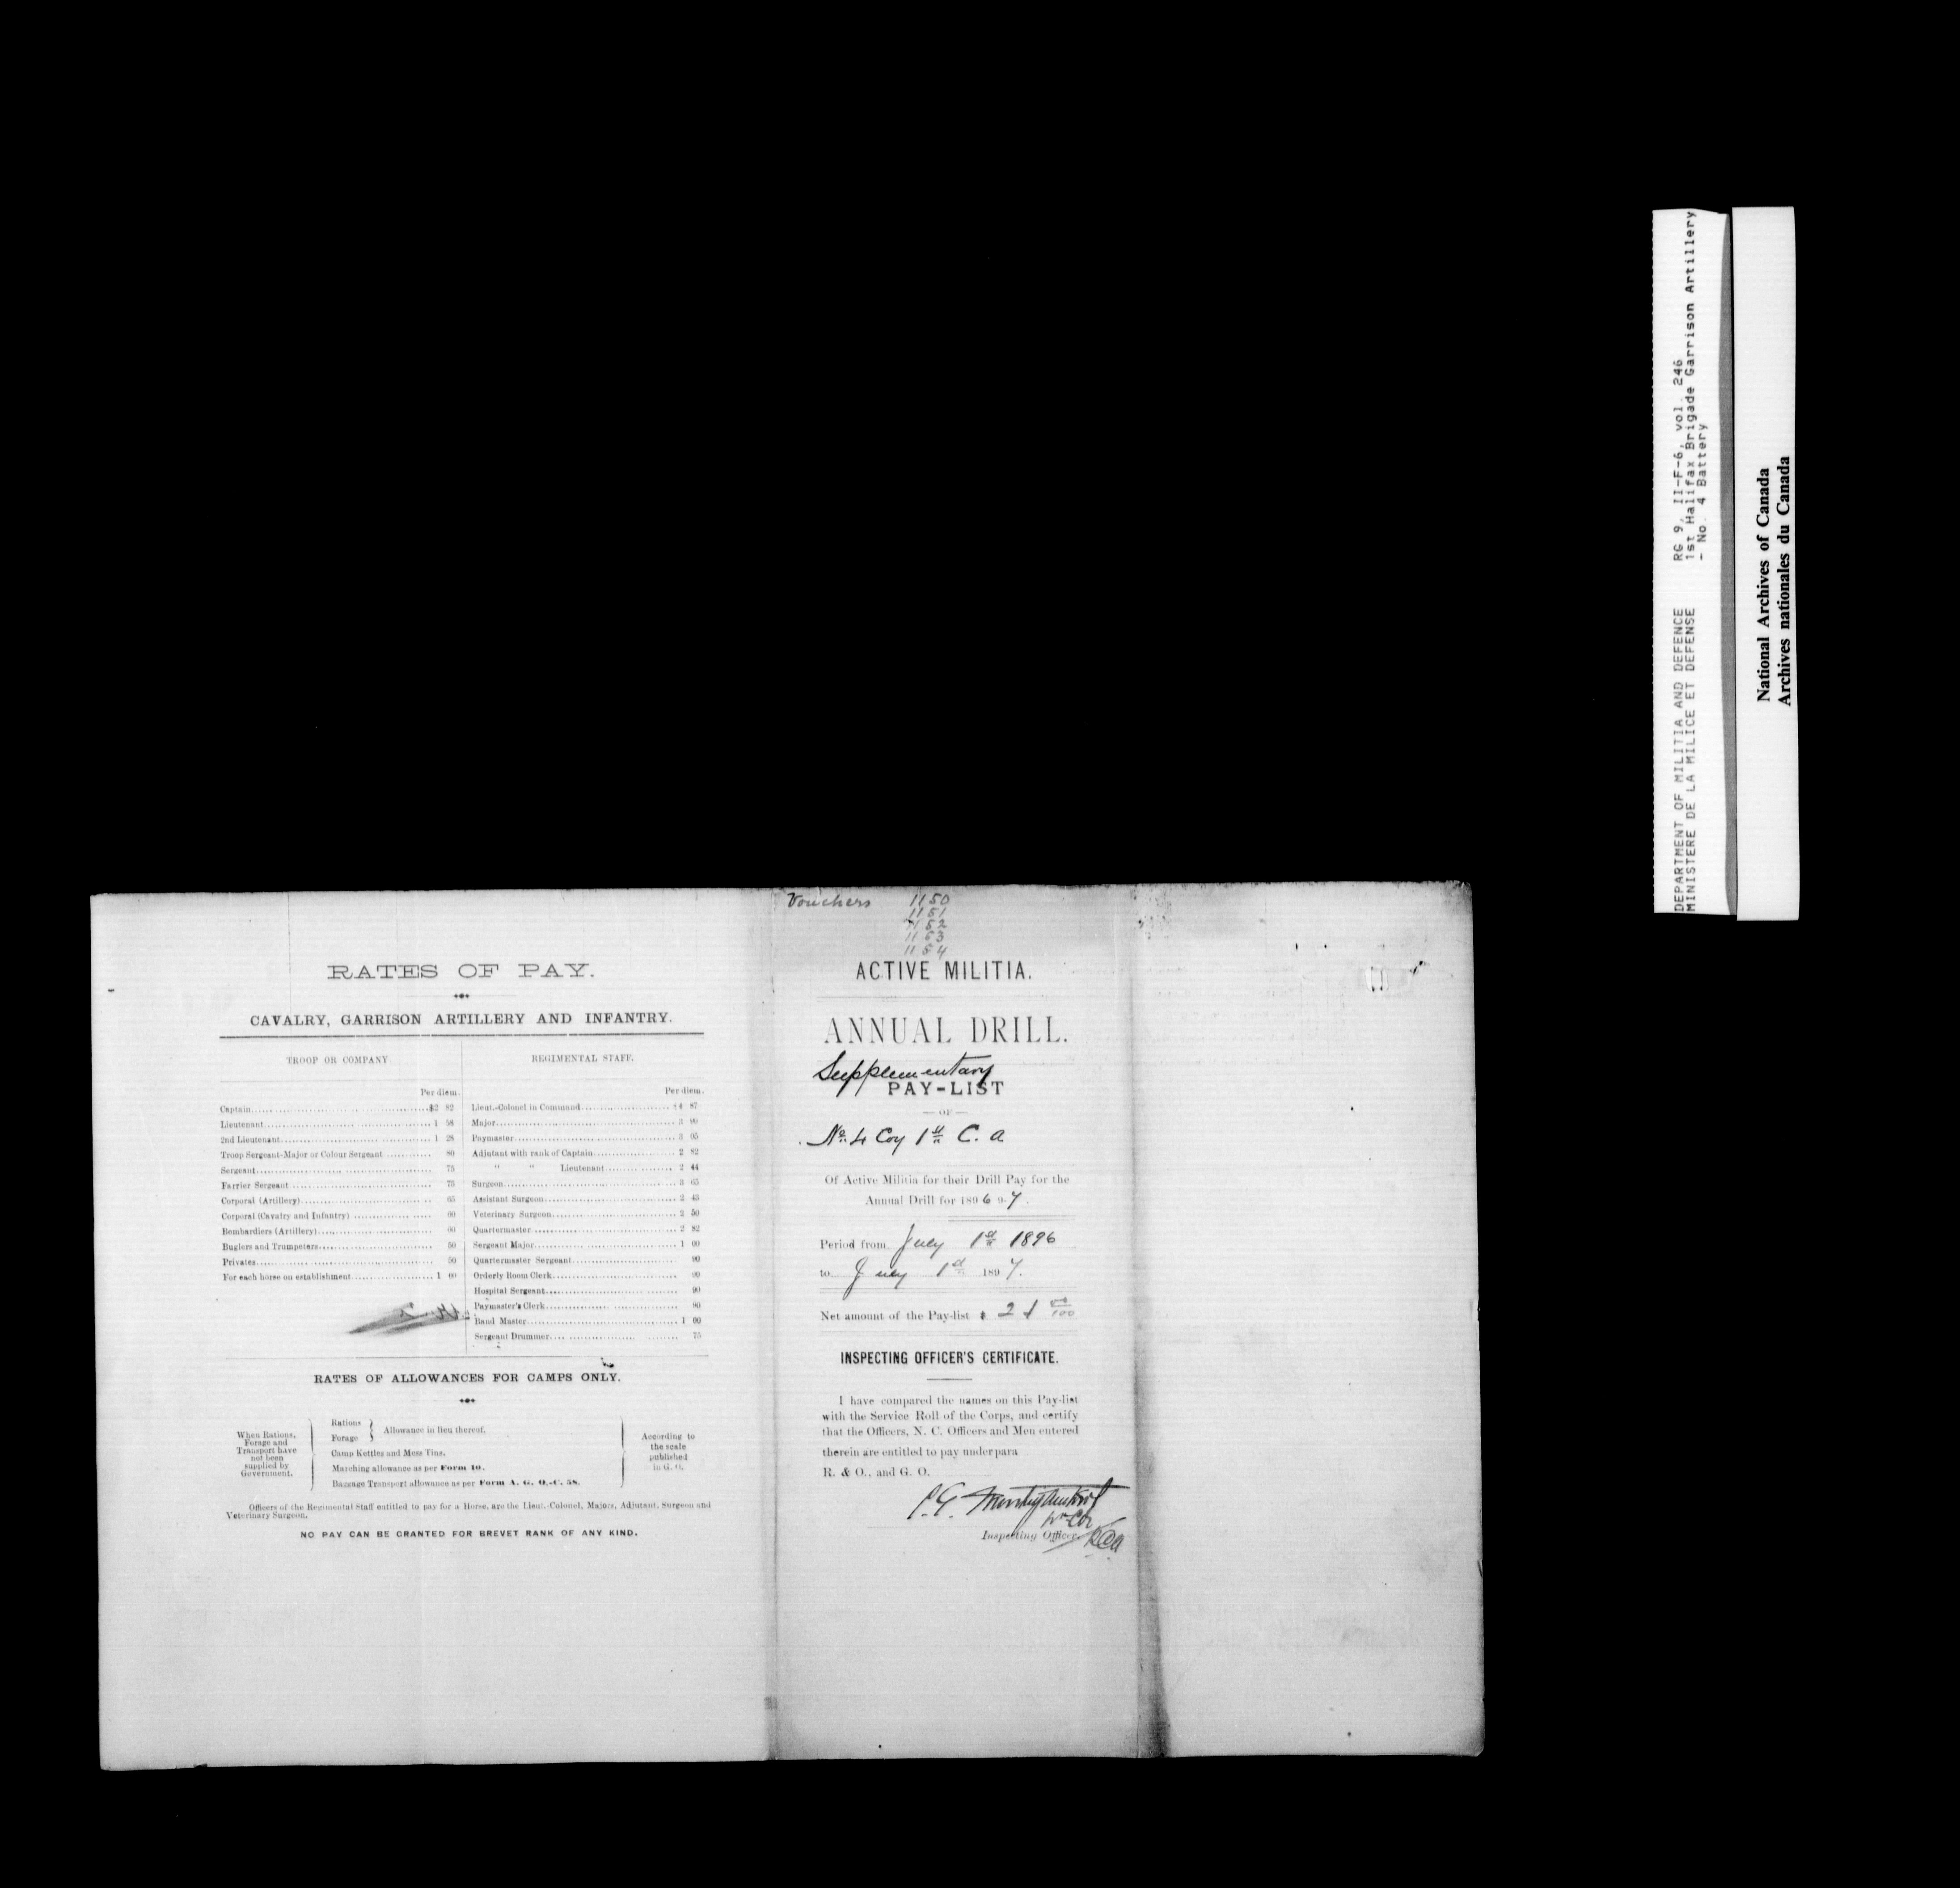 DEPARTMENT OF MILITIA AND DEFENCE
MINISTERE DE LA MILICE ET DEFENSE
RG 9, II-F-6, vol. 246
1st Halifax Brigade Garrison Artillery
- No. 4 Battery
National Archives of Canada
Archives nationales du Canada
RATES OF PAY.
CAVALRY, GARRISON ARTILLERY AND INFANTRY.
TROOP OR COMPANY
Per diem.
Captain $2 82
Lieutenant 1 58
2nd Lieutenant 1 28
Troop Sergeant-Major or Colour Sergeant 80
Sergeant 75
Farrier Sergeant 75
Corporal (Artillery) 65
Corporal (Cavalry and Infantry) 60
Bombardiers (Artillery) 60
Buglers and Trumpeters 50
Privates 50
For each horse on establishment 1 00
REGIMENTAL STAFF.
Per diem.
Lieut.-Colonel in Command $4 87
Major 3 90
Paymaster 3 05
Adjutant with rank of Captain 2 82
" " Lieutenant 2 44
Surgeon 3 65
Assistant Surgeon 2 43
Veterinary Surgeon 2 50
Quartermaster 2 82
Sergeant Major 1 00
Quartermaster Sergeant 90
Orderly Room Clerk 90
Hospital Sergeant 90
Paymaster's Clerk 90
Band Master 1 00
Sergeant Drummer 75
RATES OF ALLOWANCES FOR CAMPS ONLY.
When Rations,
Forage and
Transport have
not been
supplied by
Government.
Rations
Forage
Allowance in lieu thereof.
Camp Kettles and Mess Tins.
Marching allowance as per Form 10.
Baggage Transport allowance as per Form A. G. O.-C. 58.
According to
the scale
published
in G. O.
Officers of the Regimental Staff entitled to pay for a Horse, are the Lieut.-Colonel, Majors, Adjutant, Surgeon and
Veterinary Surgeon.
NO PAY CAN BE GRANTED FOR BREVET RANK OF ANY KIND.
Vouchers 1150
1151
1152
1153
1154
ACTIVE MILITIA.
ANNUAL DRILL.
Supplementary
PAY-LIST
— OF —
No. 4 Coy 1st C. A
Of Active Militia for their Drill Pay for the
Annual Drill for 1896 9-7.
Period from July 1st 1896
to July 1st 1897.
Net amount of the Pay-list $ 21 00/100
INSPECTING OFFICER'S CERTIFICATE.
I have compared the names on this Pay-list
with the Service Roll of the Corps, and certify
that the Officers, N. C. Officers and Men entered
therein are entitled to pay under para
R. & O., and G. O.
Inspecting Officer.